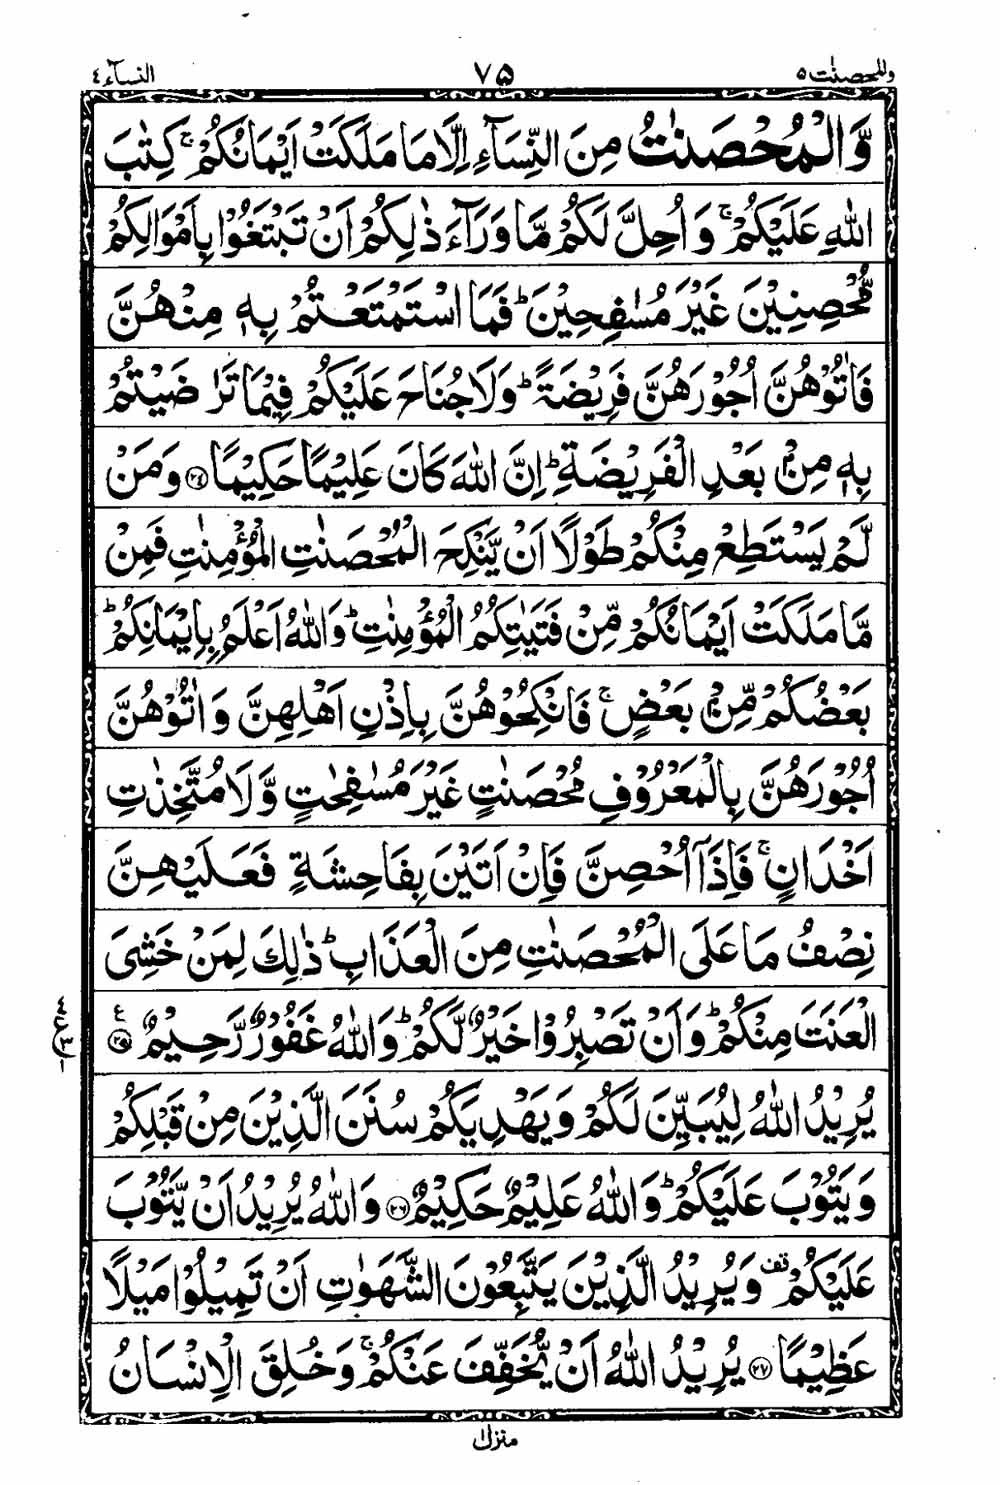 والمحصنٰت ٥ ٧٥ النسآء ٤
وَّالْمُحْصَنٰتُ مِنَ النِّسَآءِ اِلَّا مَا مَلَكَتْ اَيْمَانُكُمْ ۚ كِتٰبَ
اللّٰهِ عَلَيْكُمْ ۚ وَاُحِلَّ لَكُمْ مَّا وَرَآءَ ذٰلِكُمْ اَنْ تَبْتَغُوْا بِاَمْوَالِكُمْ
مُّحْصِنِيْنَ غَيْرَ مُسٰفِحِيْنَ ؕ فَمَا اسْتَمْتَعْتُمْ بِهٖ مِنْهُنَّ
فَاٰتُوْهُنَّ اُجُوْرَهُنَّ فَرِيْضَةً ؕ وَلَا جُنَاحَ عَلَيْكُمْ فِيْمَا تَرٰضَيْتُمْ
بِهٖ مِنْۢ بَعْدِ الْفَرِيْضَةِ ؕ اِنَّ اللّٰهَ كَانَ عَلِيْمًا حَكِيْمًا ﴿٢٤﴾ وَمَنْ
لَّمْ يَسْتَطِعْ مِنْكُمْ طَوْلًا اَنْ يَّنْكِحَ الْمُحْصَنٰتِ الْمُؤْمِنٰتِ فَمِنْ
مَّا مَلَكَتْ اَيْمَانُكُمْ مِّنْ فَتَيٰتِكُمُ الْمُؤْمِنٰتِ ؕ وَاللّٰهُ اَعْلَمُ بِاِيْمَانِكُمْ ؕ
بَعْضُكُمْ مِّنْۢ بَعْضٍ ۚ فَانْكِحُوْهُنَّ بِاِذْنِ اَهْلِهِنَّ وَاٰتُوْهُنَّ
اُجُوْرَهُنَّ بِالْمَعْرُوْفِ مُحْصَنٰتٍ غَيْرَ مُسٰفِحٰتٍ وَّلَا مُتَّخِذٰتِ
اَخْدَانٍ ۚ فَاِذَآ اُحْصِنَّ فَاِنْ اَتَيْنَ بِفَاحِشَةٍ فَعَلَيْهِنَّ
نِصْفُ مَا عَلَى الْمُحْصَنٰتِ مِنَ الْعَذَابِ ؕ ذٰلِكَ لِمَنْ خَشِىَ
الْعَنَتَ مِنْكُمْ ؕ وَاَنْ تَصْبِرُوْا خَيْرٌ لَّكُمْ ؕ وَاللّٰهُ غَفُوْرٌ رَّحِيْمٌ ﴿٢٥﴾ ع
يُرِيْدُ اللّٰهُ لِيُبَيِّنَ لَكُمْ وَيَهْدِيَكُمْ سُنَنَ الَّذِيْنَ مِنْ قَبْلِكُمْ
وَيَتُوْبَ عَلَيْكُمْ ؕ وَاللّٰهُ عَلِيْمٌ حَكِيْمٌ ﴿٢٦﴾ وَاللّٰهُ يُرِيْدُ اَنْ يَّتُوْبَ
عَلَيْكُمْ قف وَيُرِيْدُ الَّذِيْنَ يَتَّبِعُوْنَ الشَّهَوٰتِ اَنْ تَمِيْلُوْا مَيْلًا
عَظِيْمًا ﴿٢٧﴾ يُرِيْدُ اللّٰهُ اَنْ يُّخَفِّفَ عَنْكُمْ ۚ وَخُلِقَ الْاِنْسَانُ
منزل ١